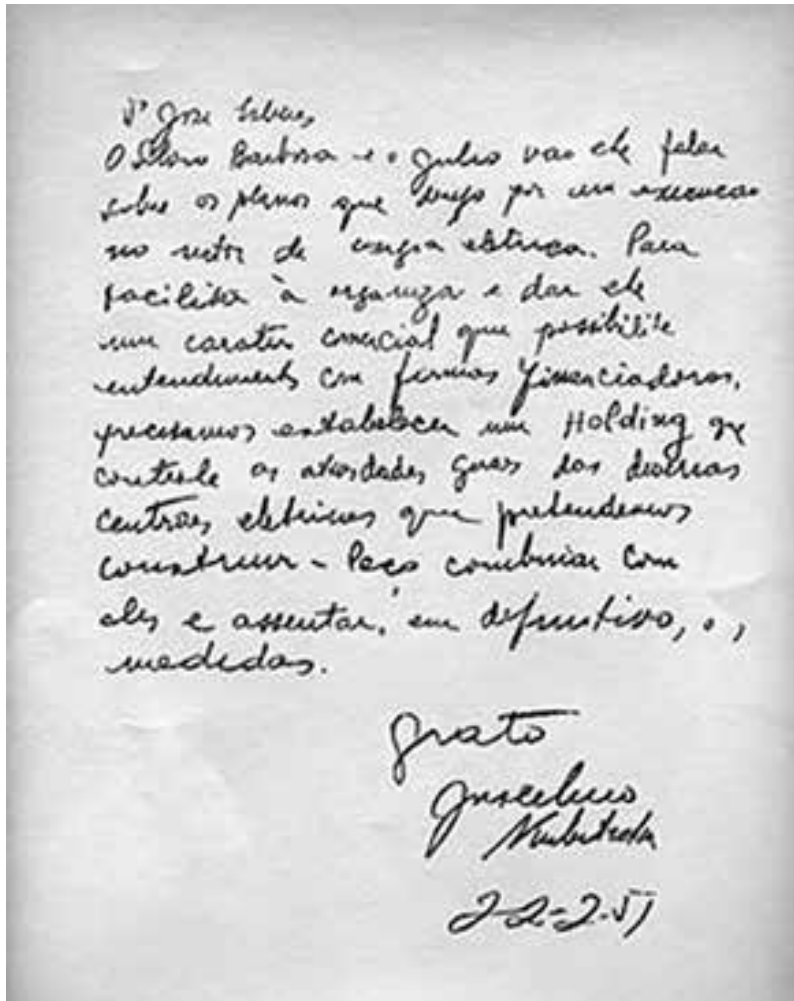 Dr José Esteves
O Silvio Barbosa e o Julio vão lhe falar
sobre os planos que desejo por em execucao
no setor de energia elétrica. Para
facilitar à organizar e dar lhe
um carater comercial que possibilite
entendimento com firmas financiadoras,
precisamos estabelecer um Holding que
controle as atividades geraes das diversas
centraes eletricas que pretendemos
construir - Peço combinar com
eles e assentar, em definitivo, as
medidas.
Grato
Juscelino
Kubitschek
22-2-51